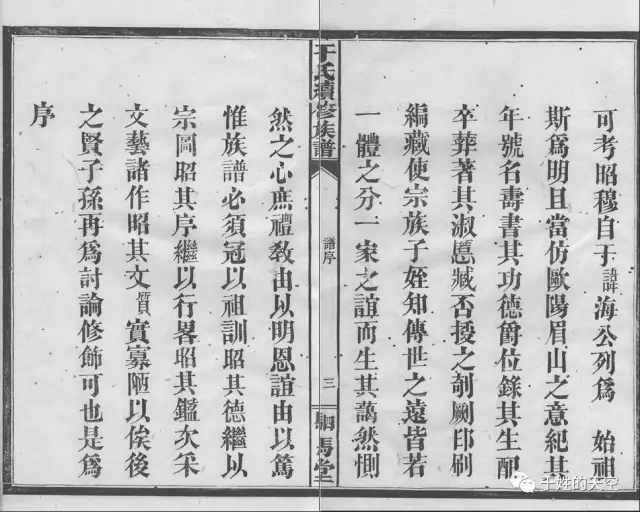 可考昭穆自于諱海公列爲 始祖
斯爲明且當仿歐陽眉山之意紀其
年號名壽書其功德爵位錄其生配
卒葬著其淑慝臧否授之剞劂印刷
編藏使宗族子姪知傳世之遠皆若
一體之分一家之誼而生其藹然惻
于氏續修族譜
譜序
三
駟馬堂
然之心庶禮敎由以明恩誼由以篤
惟族譜必須冠以祖訓昭其德繼以
宗圖昭其序繼以行畧昭其鑑次采
文藝諸作昭其文質實寡陋以俟後
之賢子孫再爲討論修飾可也是爲
序
于姓的天空